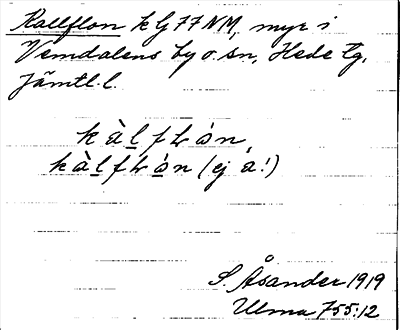 Kallflon k G 77 NM, myr i
Vemdalens by o. sn, Hede tg,
Jämtl. l.
kàlfLòn,
kàlfLòn (ej à!)
S. Åsander 1919
Ulma 755:12